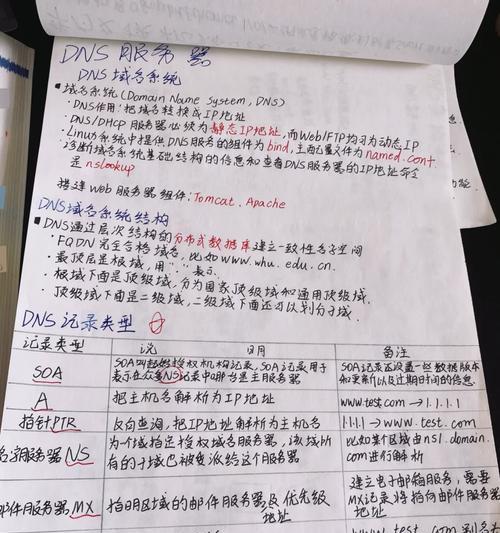 DNS 服务器
DNS 域名系统
域名系统(Domain Name System, DNS)
·DNS作用:把域名转换成IP地址
·DNS/DHCP服务器必须为静态IP地址,而Web/FTP均可为动态IP
·Linux系统中提供DNS服务的组件为bind,主配置文件为named.conf
·诊断域名系统基础结构的信息和查看DNS服务器的IP地址命令
是nslookup
搭建Web服务器组件:Tomcat、Apache
DNS域名系统结构
DNS通过层次结构的分布式数据库建立一致性名字空间
·FQDN完全合格域名,比如www.whu.edu.cn.
·最顶层是根域,用"."表示.
·根域下面是顶级域,分为国家顶级域和通用顶级域.
·顶级域下面是二级域,二级域下面还可以划分子域.
DNS记录类型
记录类型 说 明 备注
SOA SOA叫起始授权机构记录,SOA记录用于 SOA记录还设置一些数据版本
表示在众多NS记录中哪台是主服务器 和更新以及过期时间的信息.
A 把主机名解析为IP地址 www.test.com→1.1.1.1
指针PTR 反向查询,把IP地址解析为主机名 1.1.1.1→www.test.com
名字服务器NS 为一个域指定授权域名服务器,该域所 比如某个区域由ns1.domain.
有的子域也被委派给这个服务器 com进行解析
邮件服务器MX 指明区域的邮件服务器及优先级 建立电子邮箱服务,需要
地址 MX记录将指向邮件服务器
地址
www.test.com